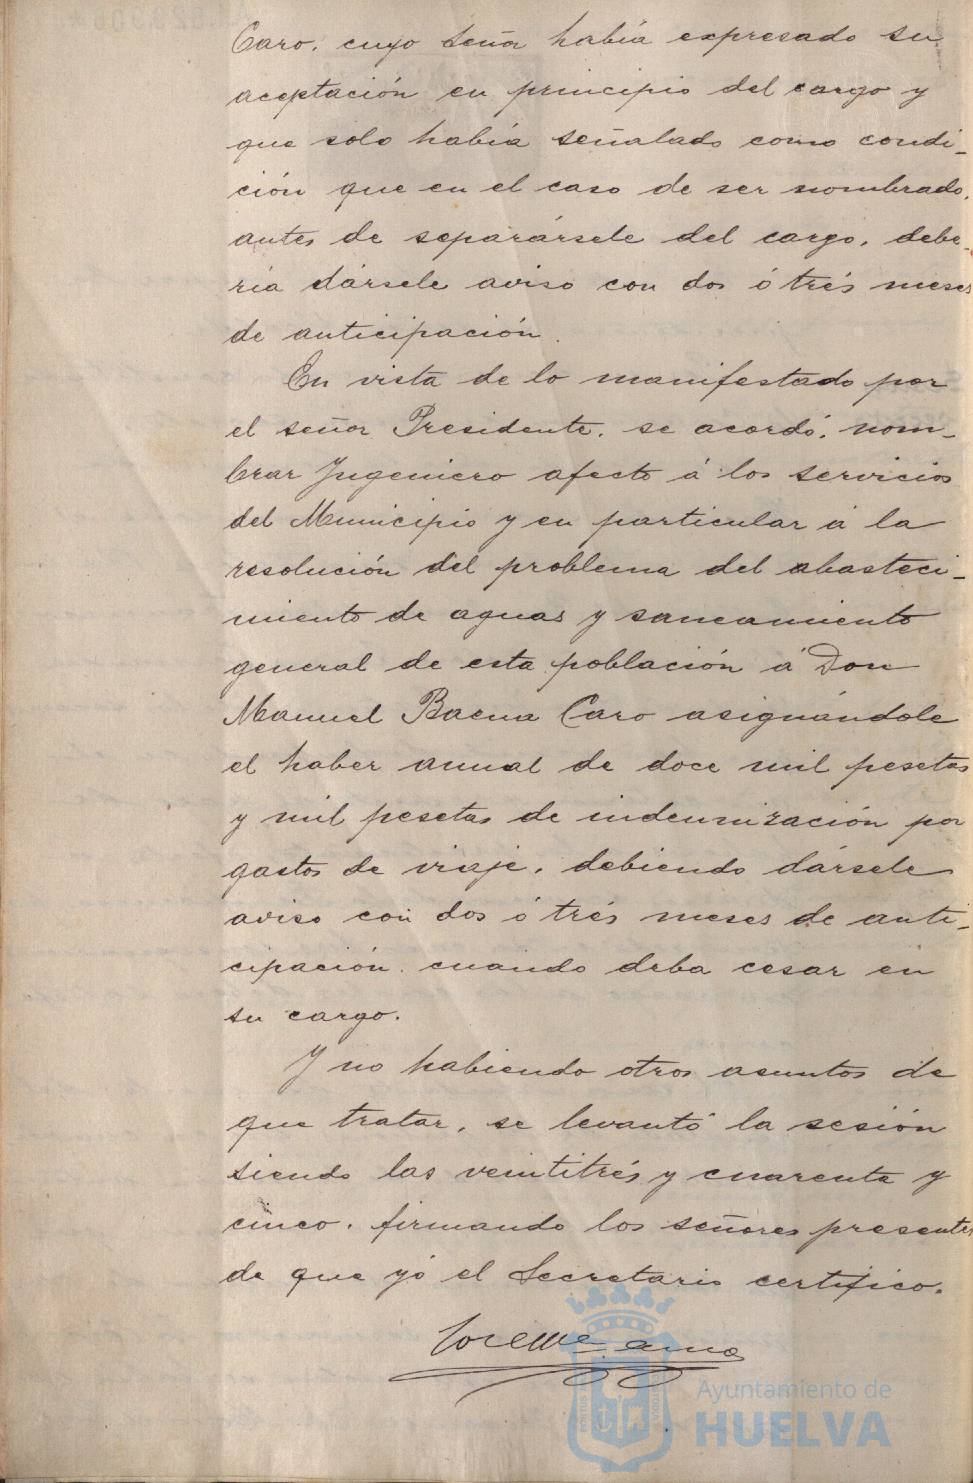 Caro, cuyo Señor había expresado su
aceptación en principio del cargo y
que solo había señalado como condi-
ción que en el caso de ser nombrado,
antes de separársele del cargo, debe-
ría dársele aviso con dos ó trés meses
de anticipación.
En vista de lo manifestado por
el señor Presidente, se acordó, nom-
brar Ingeniero afecto á los servicios
del Municipio y en particular á la
resolución del problema del abasteci-
miento de aguas y saneamiento
general de esta población á Don
Manuel Baena Caro asignándole
el haber anual de doce mil pesetas
y mil pesetas de indemnización por
gastos de viaje, debiendo dársele
aviso con dos ó trés meses de anti-
cipación cuando deba cesar en
su cargo.
Y no habiendo otros asuntos de
que tratar, se levantó la sesión
siendo las veintitrés y cuarenta y
cinco, firmando los señores presentes
de que yó el Secretario certifico.
Ayuntamiento de
HUELVA